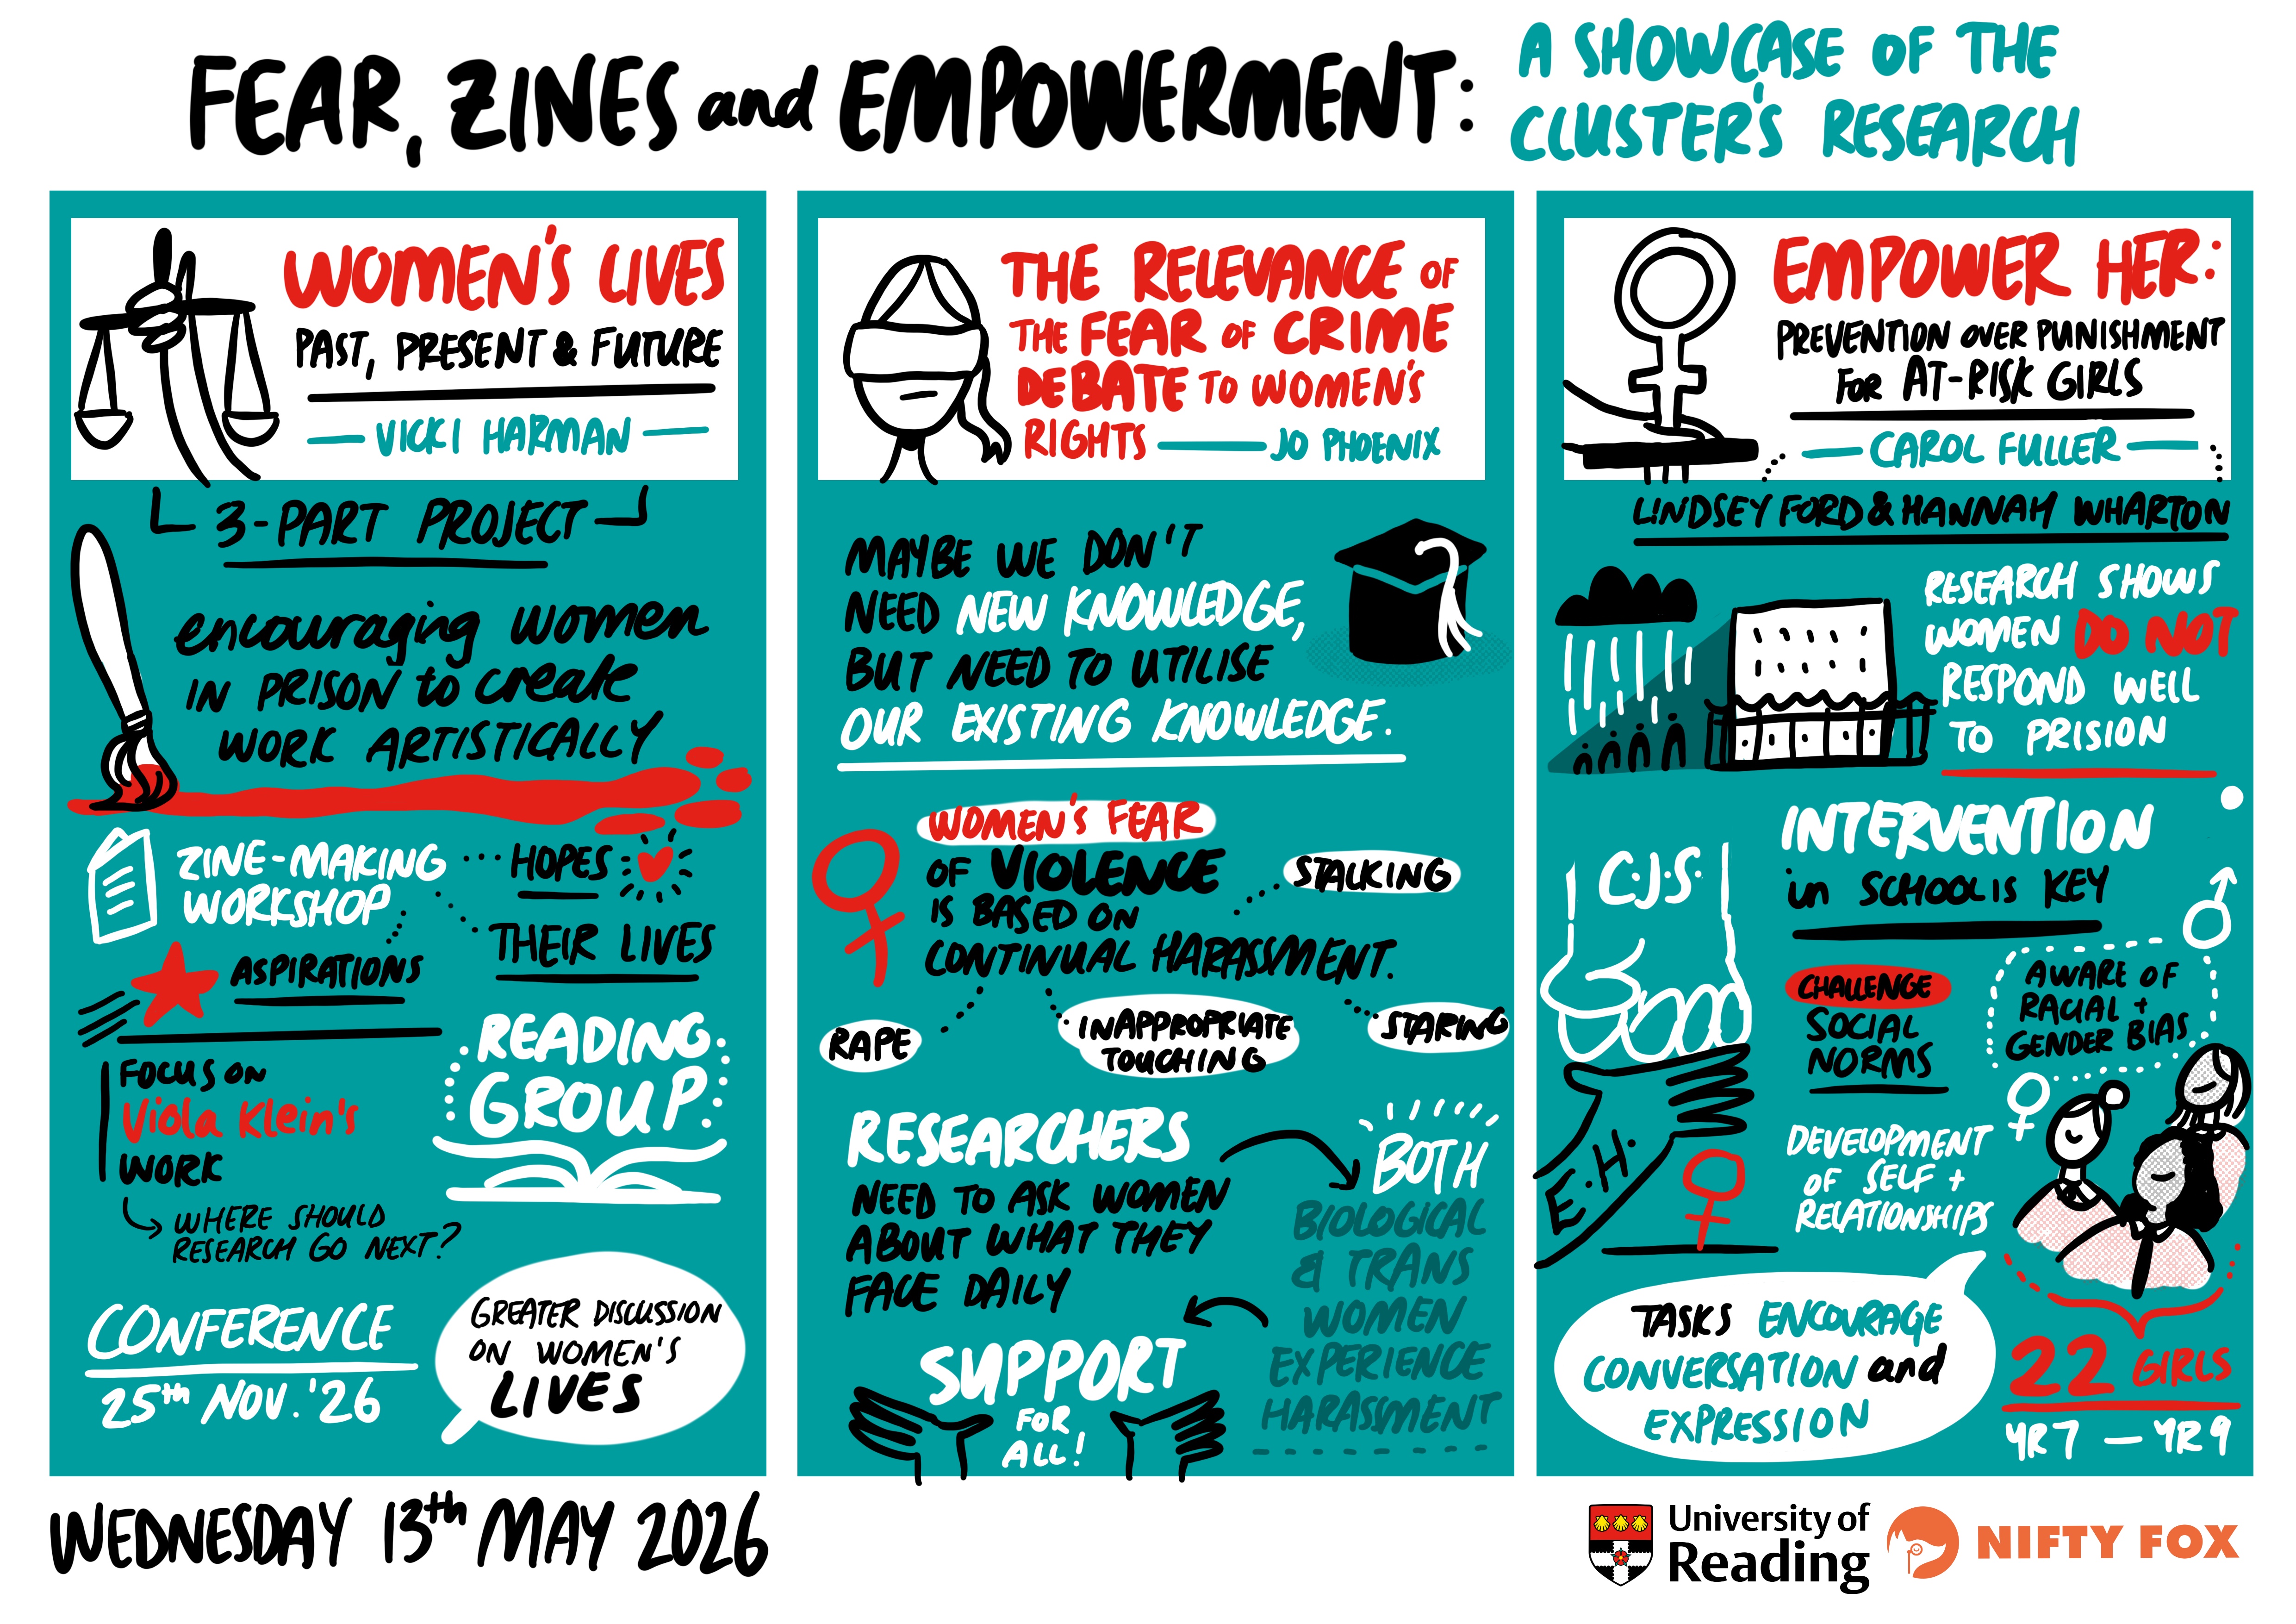 FEAR, ZINES and EMPOWERMENT:
A SHOWCASE OF THE
CLUSTER'S RESEARCH
WOMEN'S LIVES
PAST, PRESENT & FUTURE
VICKI HARMAN
3-PART PROJECT
encouraging women
IN PRISON to create
WORK ARTISTICALLY
ZINE-MAKING
WORKSHOP
HOPES
THEIR LIVES
ASPIRATIONS
READING
GROUP
FOCUS ON
Viola Klein's
WORK
WHERE SHOULD
RESEARCH GO NEXT?
CONFERENCE
25th NOV. '26
GREATER DISCUSSION
ON WOMEN'S
LIVES
THE RELEVANCE OF
THE FEAR OF CRIME
DEBATE TO WOMEN'S
RIGHTS JO PHOENIX
MAYBE WE DON'T
NEED NEW KNOWLEDGE,
BUT NEED TO UTILISE
OUR EXISTING KNOWLEDGE.
WOMEN'S FEAR
OF VIOLENCE
IS BASED ON
CONTINUAL HARASSMENT.
STALKING
RAPE
INAPPROPRIATE
TOUCHING
STARING
RESEARCHERS
NEED TO ASK WOMEN
ABOUT WHAT THEY
FACE DAILY
BOTH
BIOLOGICAL
& TRANS
WOMEN
EXPERIENCE
HARASSMENT
SUPPORT
FOR
ALL!
EMPOWER HER:
PREVENTION OVER PUNISHMENT
FOR AT-RISK GIRLS
CAROL FULLER
LINDSEY FORD & HANNAH WHARTON
RESEARCH SHOWS
WOMEN DO NOT
RESPOND WELL
TO PRISION
INTERVENTION
in SCHOOL IS KEY
C.J.S.
E.H.
CHALLENGE
SOCIAL
NORMS
AWARE OF
RACIAL +
GENDER BIAS
DEVELOPMENT
OF SELF +
RELATIONSHIPS
TASKS ENCOURAGE
CONVERSATION and
EXPRESSION
22 GIRLS
YR 7 — YR 9
WEDNESDAY 13th MAY 2026
University of
Reading
NIFTY FOX